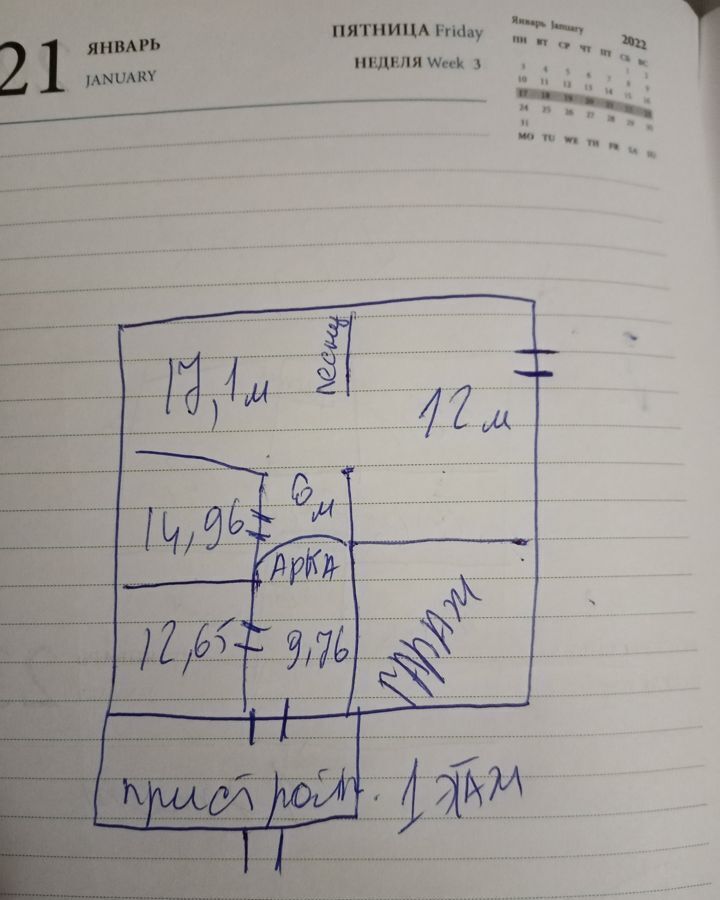 21
ЯНВАРЬ
JANUARY
ПЯТНИЦА Friday
НЕДЕЛЯ Week 3
Январь January 2022
ПН ВТ СР ЧТ ПТ СБ ВС
1 2
3 4 5 6 7 8 9
10 11 12 13 14 15 16
17 18 19 20 21 22 23
24 25 26 27 28 29 30
31
MO TU WE TH FR SA SU
17,1м
12м
14,96
6м
АРКА
12,65
9,76
ГАРАЖ
1 ЭТАЖ